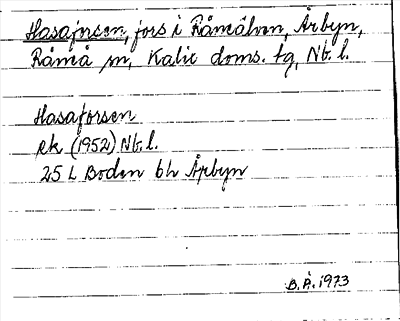 Hasaforsen, fors i Råneälven, Årbyn,
Råneå sn, Kalix doms. tg, Nb. l.
Hasaforsen
ek (1952) Nb. l.
25 L Boden bl Årbyn
B. Å. 1973